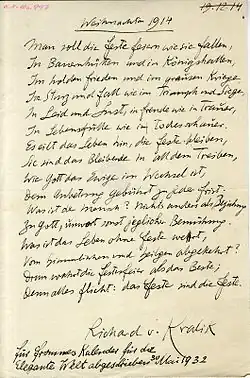 19.12.14
Weihnachten 1914
Man soll die Feste feiern wie sie fallen,
In Bauernhütten und in Königshallen,
Im holden Frieden und im grausen Kriege
In Sturz und Fall wie im Triumph und Siege,
In Leid und Lust, in Freude wie in Trauer,
In Lebensfülle wie im Todesschauer.
Es eilt das Leben hin, die Feste bleiben,
Sie sind das Bleibende in all dem Treiben,
Wie Gott das Ewige im Wechsel ist,
Dem Anbetung gebührt zu jeder Frist.
Was ist der Mensch? Nichts anders als Beziehung
Zu Gott, umsonst sonst jegliche Bemühung.
Was ist das Leben ohne Feste wert,
Vom himmlischen und heilgen abgekehrt?
Drum wahrt die Festesfeier als das Beste;
Denn alles flieht: das Feste sind die Feste.
Richard v. Kralik
Für Grommes Kalender für die
Elegante Welt abgeschrieben 20 Mai 1932